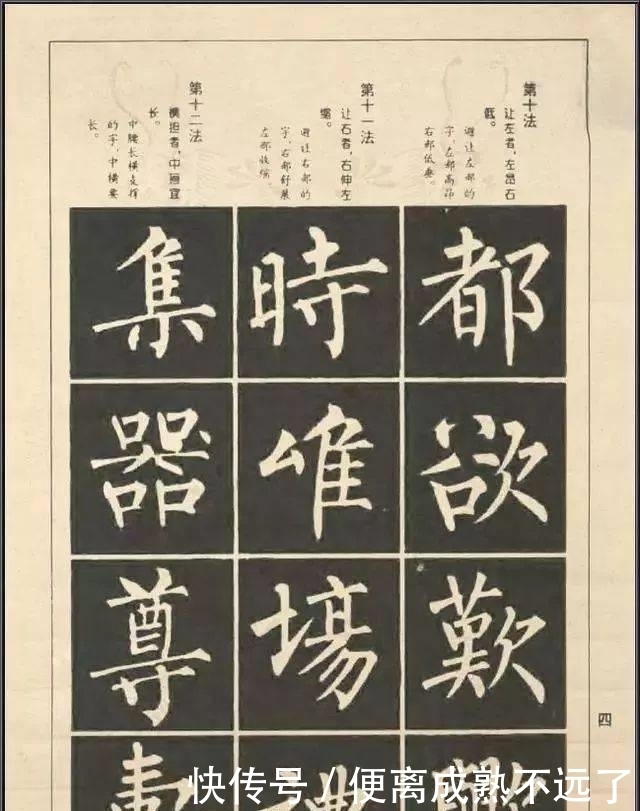 第十法
让左者，左昂右
低。
避让左部的
字，左部高昂
右部低垂。
都
欲
歎
第十一法
让右者，右伸左
缩。
避让右部的
字，右部舒展
左部收缩。
時
場
第十二法
横担者，中画宜
长。
中腰长横支撑
的字，中横要
长。
集
器
尊
四
快传号/便离成熟不远了